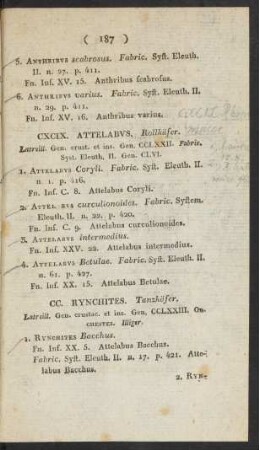 ( 187 )
5. ANTHRIBVS scabrosus. Fabric. Syſt. Eleuth.
II. n. 27. p. 411.
Fn. Inſ. XV. 15. Anthribus ſcabroſus.
6. ANTHRIBVS varius. Fabric. Syſt. Eleuth. II.
n. 29. p. 411.
Fn. Inſ. XV. 16. Anthribus varius.
CXCIX. ATTELABVS, Rollkäfer.
Latreill. Gen. cruſt. et ins. Gen. CCLXXII. Fabric.
Syst. Eleuth. II. Gen. CLVI.
1. ATTELABVS Coryli. Fabric. Syſt. Eleuth. II.
n. 1. p. 416.
Fn. Inſ. C. 8. Attelabus Coryli.
2. ATTELABVS curculionoides. Fabric. Syſtem.
Eleuth. II. n. 22. p. 420.
Fn. Inſ. C. 9. Attelabus curculionoides.
3. ATTELABVS intermedius.
Fn. Inſ. XXV. 22. Attelabus intermedius.
4. ATTELABVS Betulae. Fabric. Syſt. Eleuth. II.
n. 61. p. 427.
Fn. Inſ. XX. 15. Attelabus Betulae.
CC. RYNCHITES. Tanzkäfer.
Latreill. Gen. crustac. et ins. Gen. CCLXXIII. OR-
CHESTES. Illiger.
1. RYNCHITES Bacchus.
Fn. Inſ. XX. 5. Attelabus Bacchus.
Fabric. Syſt. Eleuth. II. n. 17. p. 421. Atte-
labus Bacchus.
2. RYN-